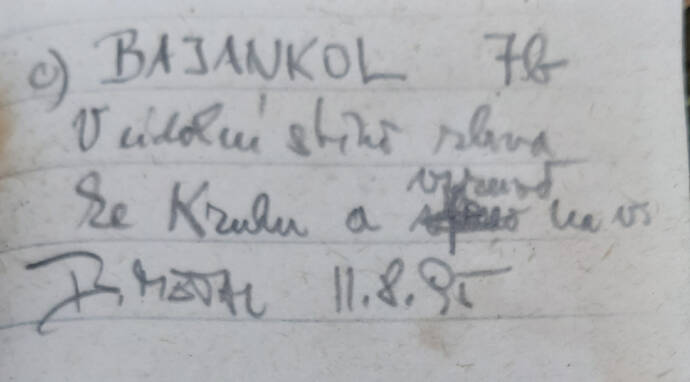 c) BAJANKOL 7b
V údolní stěně zleva
ke Kruhu a vpravo na vš
11.8.95